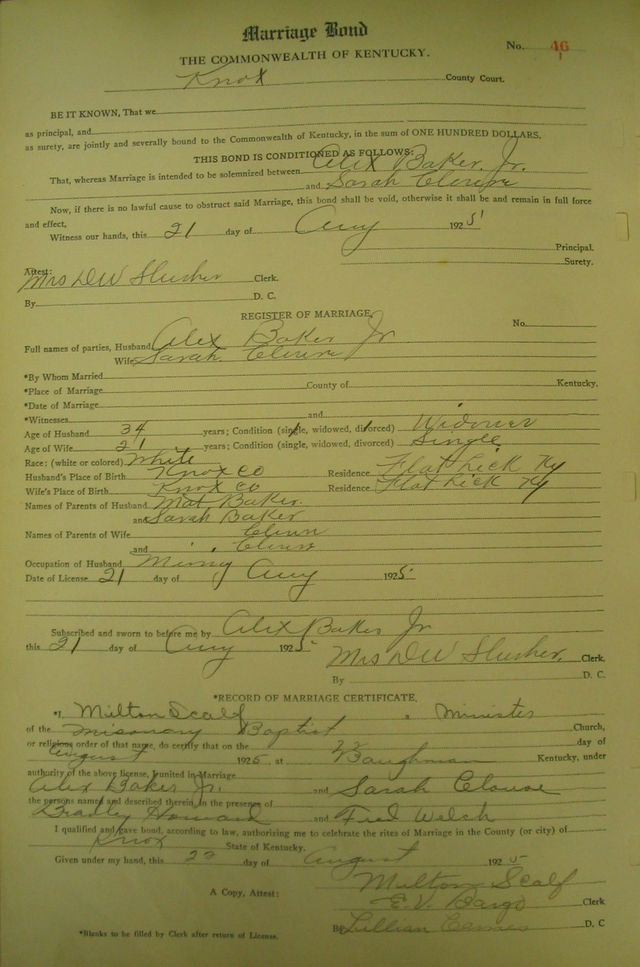 Marriage Bond
THE COMMONWEALTH OF KENTUCKY. No. 46
Knox County Court.
BE IT KNOWN, That we
as principal, and
as surety, are jointly and severally bound to the Commonwealth of Kentucky, in the sum of ONE HUNDRED DOLLARS.
THIS BOND IS CONDITIONED AS FOLLOWS:
That, whereas Marriage is intended to be solemnized between Alix Baker. Jr.
and Sarah
Now, if there is no lawful cause to obstruct said Marriage, this bond shall be void, otherwise it shall be and remain in full force
and effect,
Witness our hands, this 21 day of Aug 1925
Principal.
Surety.
Attest:
Mrs D W Slusher Clerk.
By D. C.
REGISTER OF MARRIAGE
No.
Full names of parties, Husband Alix Baker Jr
Wife Sarah
*By Whom Married
*Place of Marriage County of Kentucky.
*Date of Marriage
*Witnesses and
Age of Husband 34 years; Condition (single, widowed, divorced) Widower
Age of Wife 21 years; Condition (single, widowed, divorced) Single
Race: (white or colored) White
Husband's Place of Birth Knox Co Residence Flat Lick Ky
Wife's Place of Birth Knox Co Residence Flat Lick Ky
Names of Parents of Husband Mat Baker
and Sarah Baker
Names of Parents of Wife
and
Occupation of Husband
Date of License 21 day of Aug 1925
Subscribed and sworn to before me by Alix Baker Jr
this 21 day of Aug 1925
Mrs D W Slusher. Clerk.
By D. C.
*RECORD OF MARRIAGE CERTIFICATE.
*I, Milton Scalf, Minister
of the Missonary Baptist Church,
or religious order of that name, do certify that on the 22 day of
August 1925, at Baughman Kentucky, under
authority of the above license, I united in Marriage
Alix Baker Jr. and Sarah Clouse
the persons named and described therein, in the presence of
Bradley Howard and Fred Welch
I qualified and gave bond, according to law, authorizing me to celebrate the rites of Marriage in the County (or city) of
Knox State of Kentucky.
Given under my hand, this 22 day of August 1925
Milton Scalf
A Copy, Attest: E. V. Bargo Clerk
By Lillian D. C
*Blanks to be filled by Clerk after return of License.